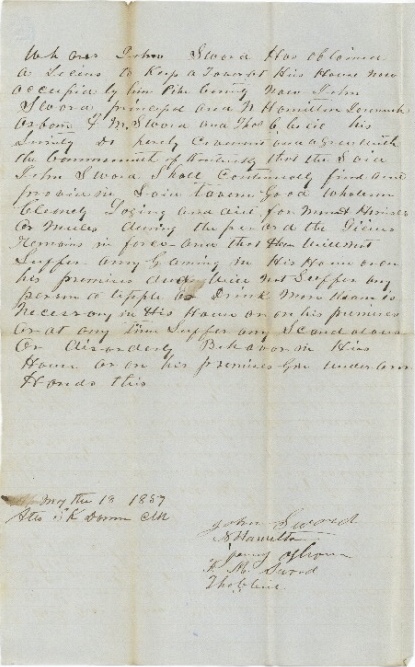 Whereas John Sword Has obtained
a Licens to Keep a Tavern at His House now
occupied by him Pike County Now John
Sword principal and N Hamilton
Osborn F. M. Sword and Thos Cline his
Surety do hereby Covenant and agree with
the Commonwealth of Kentucky that the Said
John Sword Shall Continualy find and
provide in Said Tavern Good Wholesome
Cleanly Loging and diet for Man & Horses
or Mules during the period the Licens
Remains in force and that He Will not
Suffer any Gaming in His House or on
his premises and Will not Suffer any
person to tipple or Drink More than is
necessary in His House or on his premises
or at any time Suffer any Scandalous
or disorderly Behavor in His
House or on his premises Given under our
Hands this
May the 18 1857
Atts Clk
John Sword
N Hamilton
Osborn
F. M. Sword
Thos Cline